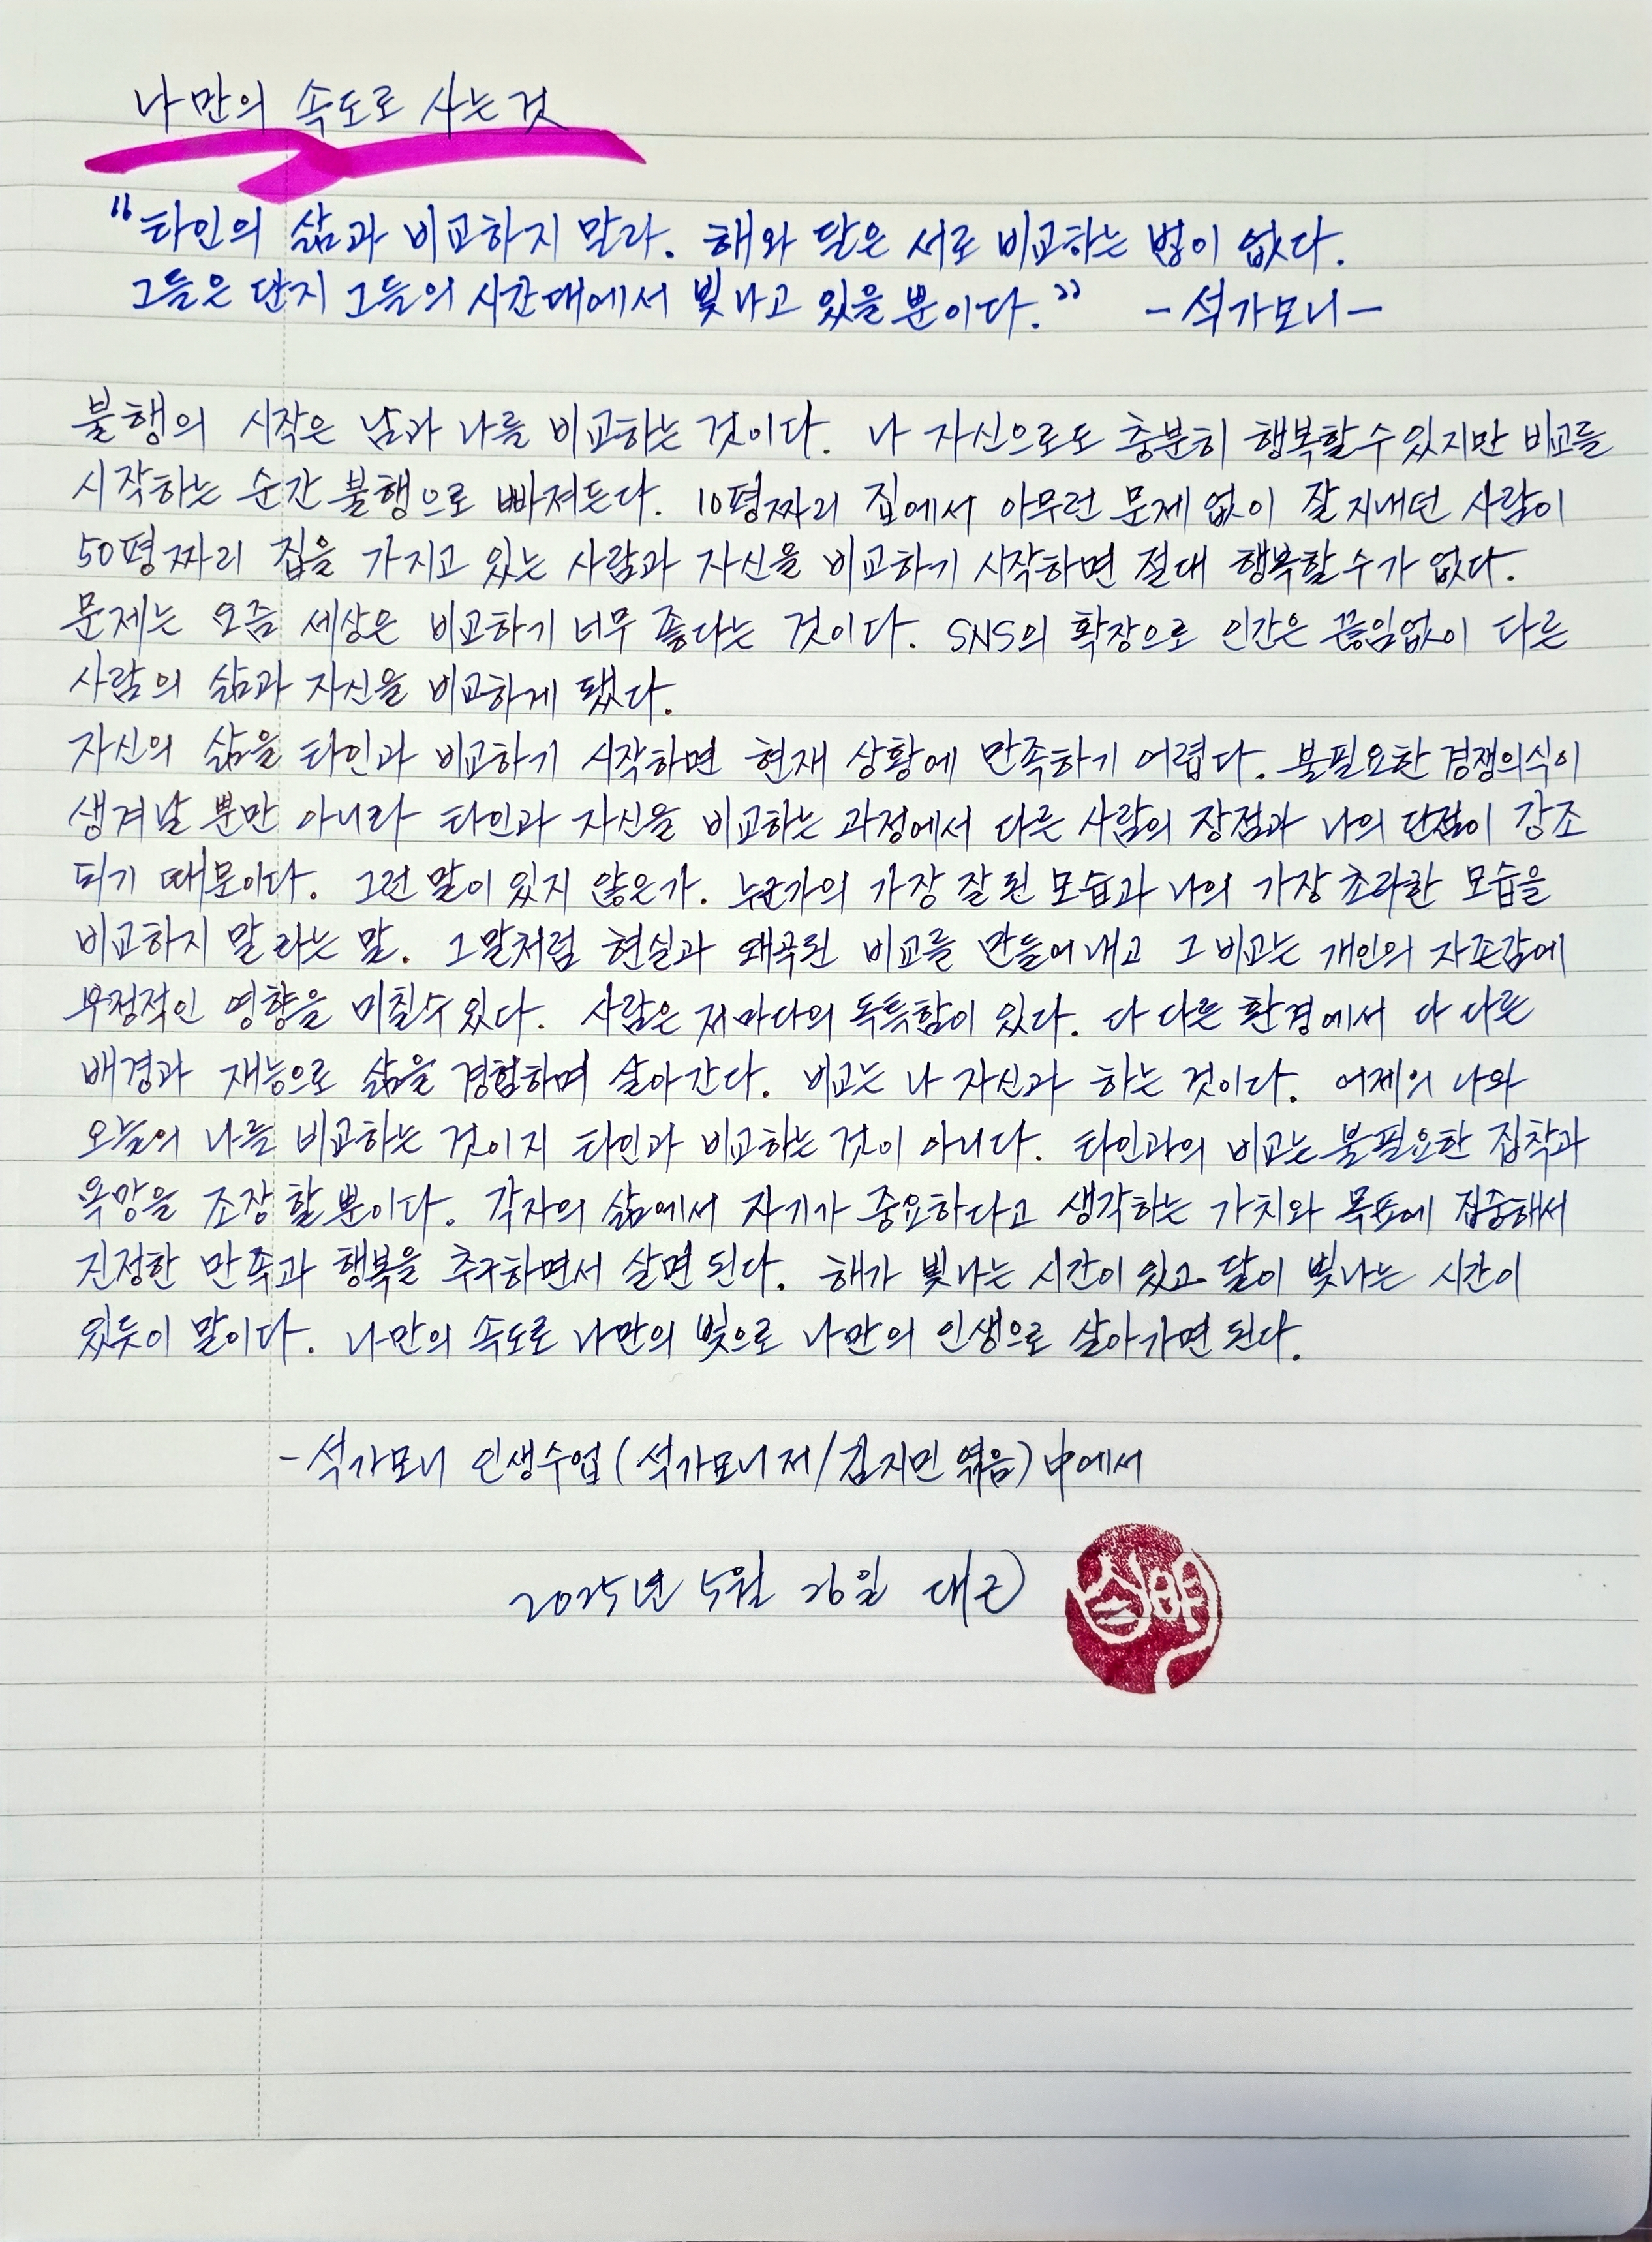 나만의 속도로 사는 것
"타인의 삶과 비교하지 말라. 해와 달은 서로 비교하는 법이 없다.
그들은 단지 그들의 시간대에서 빛나고 있을 뿐이다." -석가모니-
불행의 시작은 남과 나를 비교하는 것이다. 나 자신으로도 충분히 행복할 수 있지만 비교를
시작하는 순간 불행으로 빠져든다. 10평짜리 집에서 아무런 문제 없이 잘 지내던 사람이
50평짜리 집을 가지고 있는 사람과 자신을 비교하기 시작하면 절대 행복할 수가 없다.
문제는 요즘 세상은 비교하기 너무 좋다는 것이다. SNS의 확장으로 인간은 끊임없이 다른
사람의 삶과 자신을 비교하게 됐다.
자신의 삶을 타인과 비교하기 시작하면 현재 상황에 만족하기 어렵다. 불필요한 경쟁의식이
생겨날 뿐만 아니라 타인과 자신을 비교하는 과정에서 다른 사람의 장점과 나의 단점이 강조
되기 때문이다. 그런 말이 있지 않은가. 누군가의 가장 잘 된 모습과 나의 가장 초라한 모습을
비교하지 말라는 말. 그 말처럼 현실과 왜곡된 비교를 만들어 내고 그 비교는 개인의 자존감에
부정적인 영향을 미칠 수 있다. 사람은 저마다의 독특함이 있다. 다 다른 환경에서 다 다른
배경과 재능으로 삶을 경험하며 살아간다. 비교는 나 자신과 하는 것이다. 어제의 나와
오늘의 나를 비교하는 것이지 타인과 비교하는 것이 아니다. 타인과의 비교는 불필요한 집착과
욕망을 조장할 뿐이다. 각자의 삶에서 자기가 중요하다고 생각하는 가치와 목표에 집중해서
진정한 만족과 행복을 추구하면서 살면 된다. 해가 빛나는 시간이 있고 달이 빛나는 시간이
있듯이 말이다. 나만의 속도로 나만의 빛으로 나만의 인생으로 살아가면 된다.
-석가모니 인생수업(석가모니 저/김지민 엮음) 中에서
2025년 5월 26일 대근